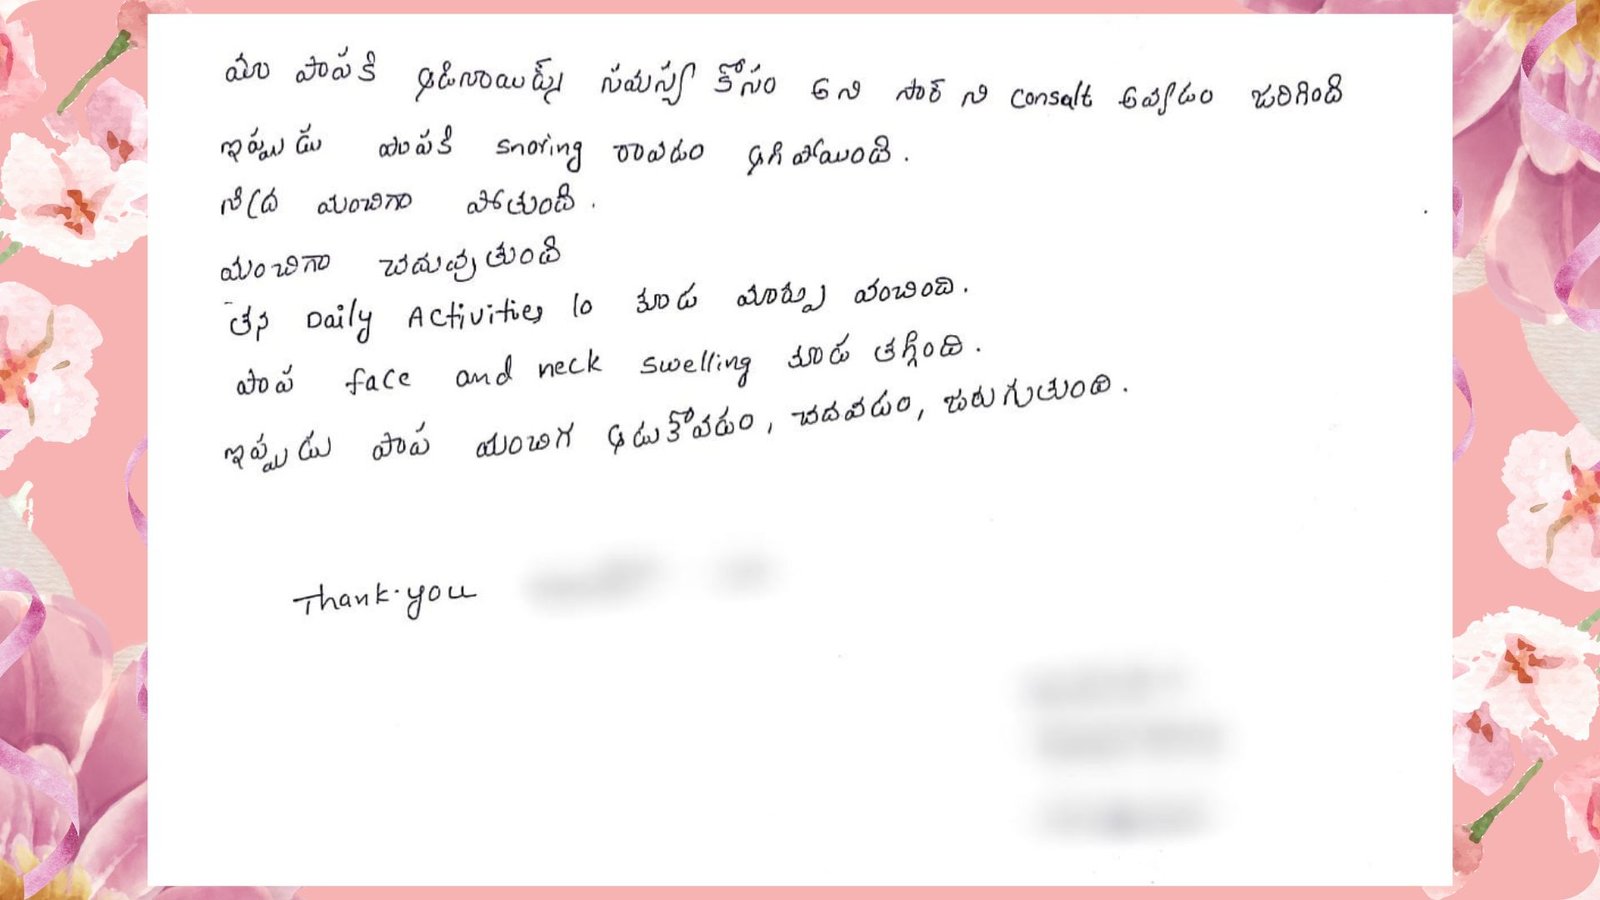 మా పాపకి ఆడినాయిడ్స్ సమస్య కోసం సార్ ని consalt అవ్వడం జరిగింది
ఇప్పుడు పాపకి snoring రావడం ఆగి పోయింది.
నిద్ర మంచిగా పోతుంది.
మంచిగా చదువుతుంది
తన Daily Activities lo కూడ మార్పు వచింది.
పాప face and neck swelling కూడ తగ్గింది.
ఇప్పుడు పాప మంచిగ ఆడుకోవడం, చదవడం, జరుగుతుంది.
Thank.you